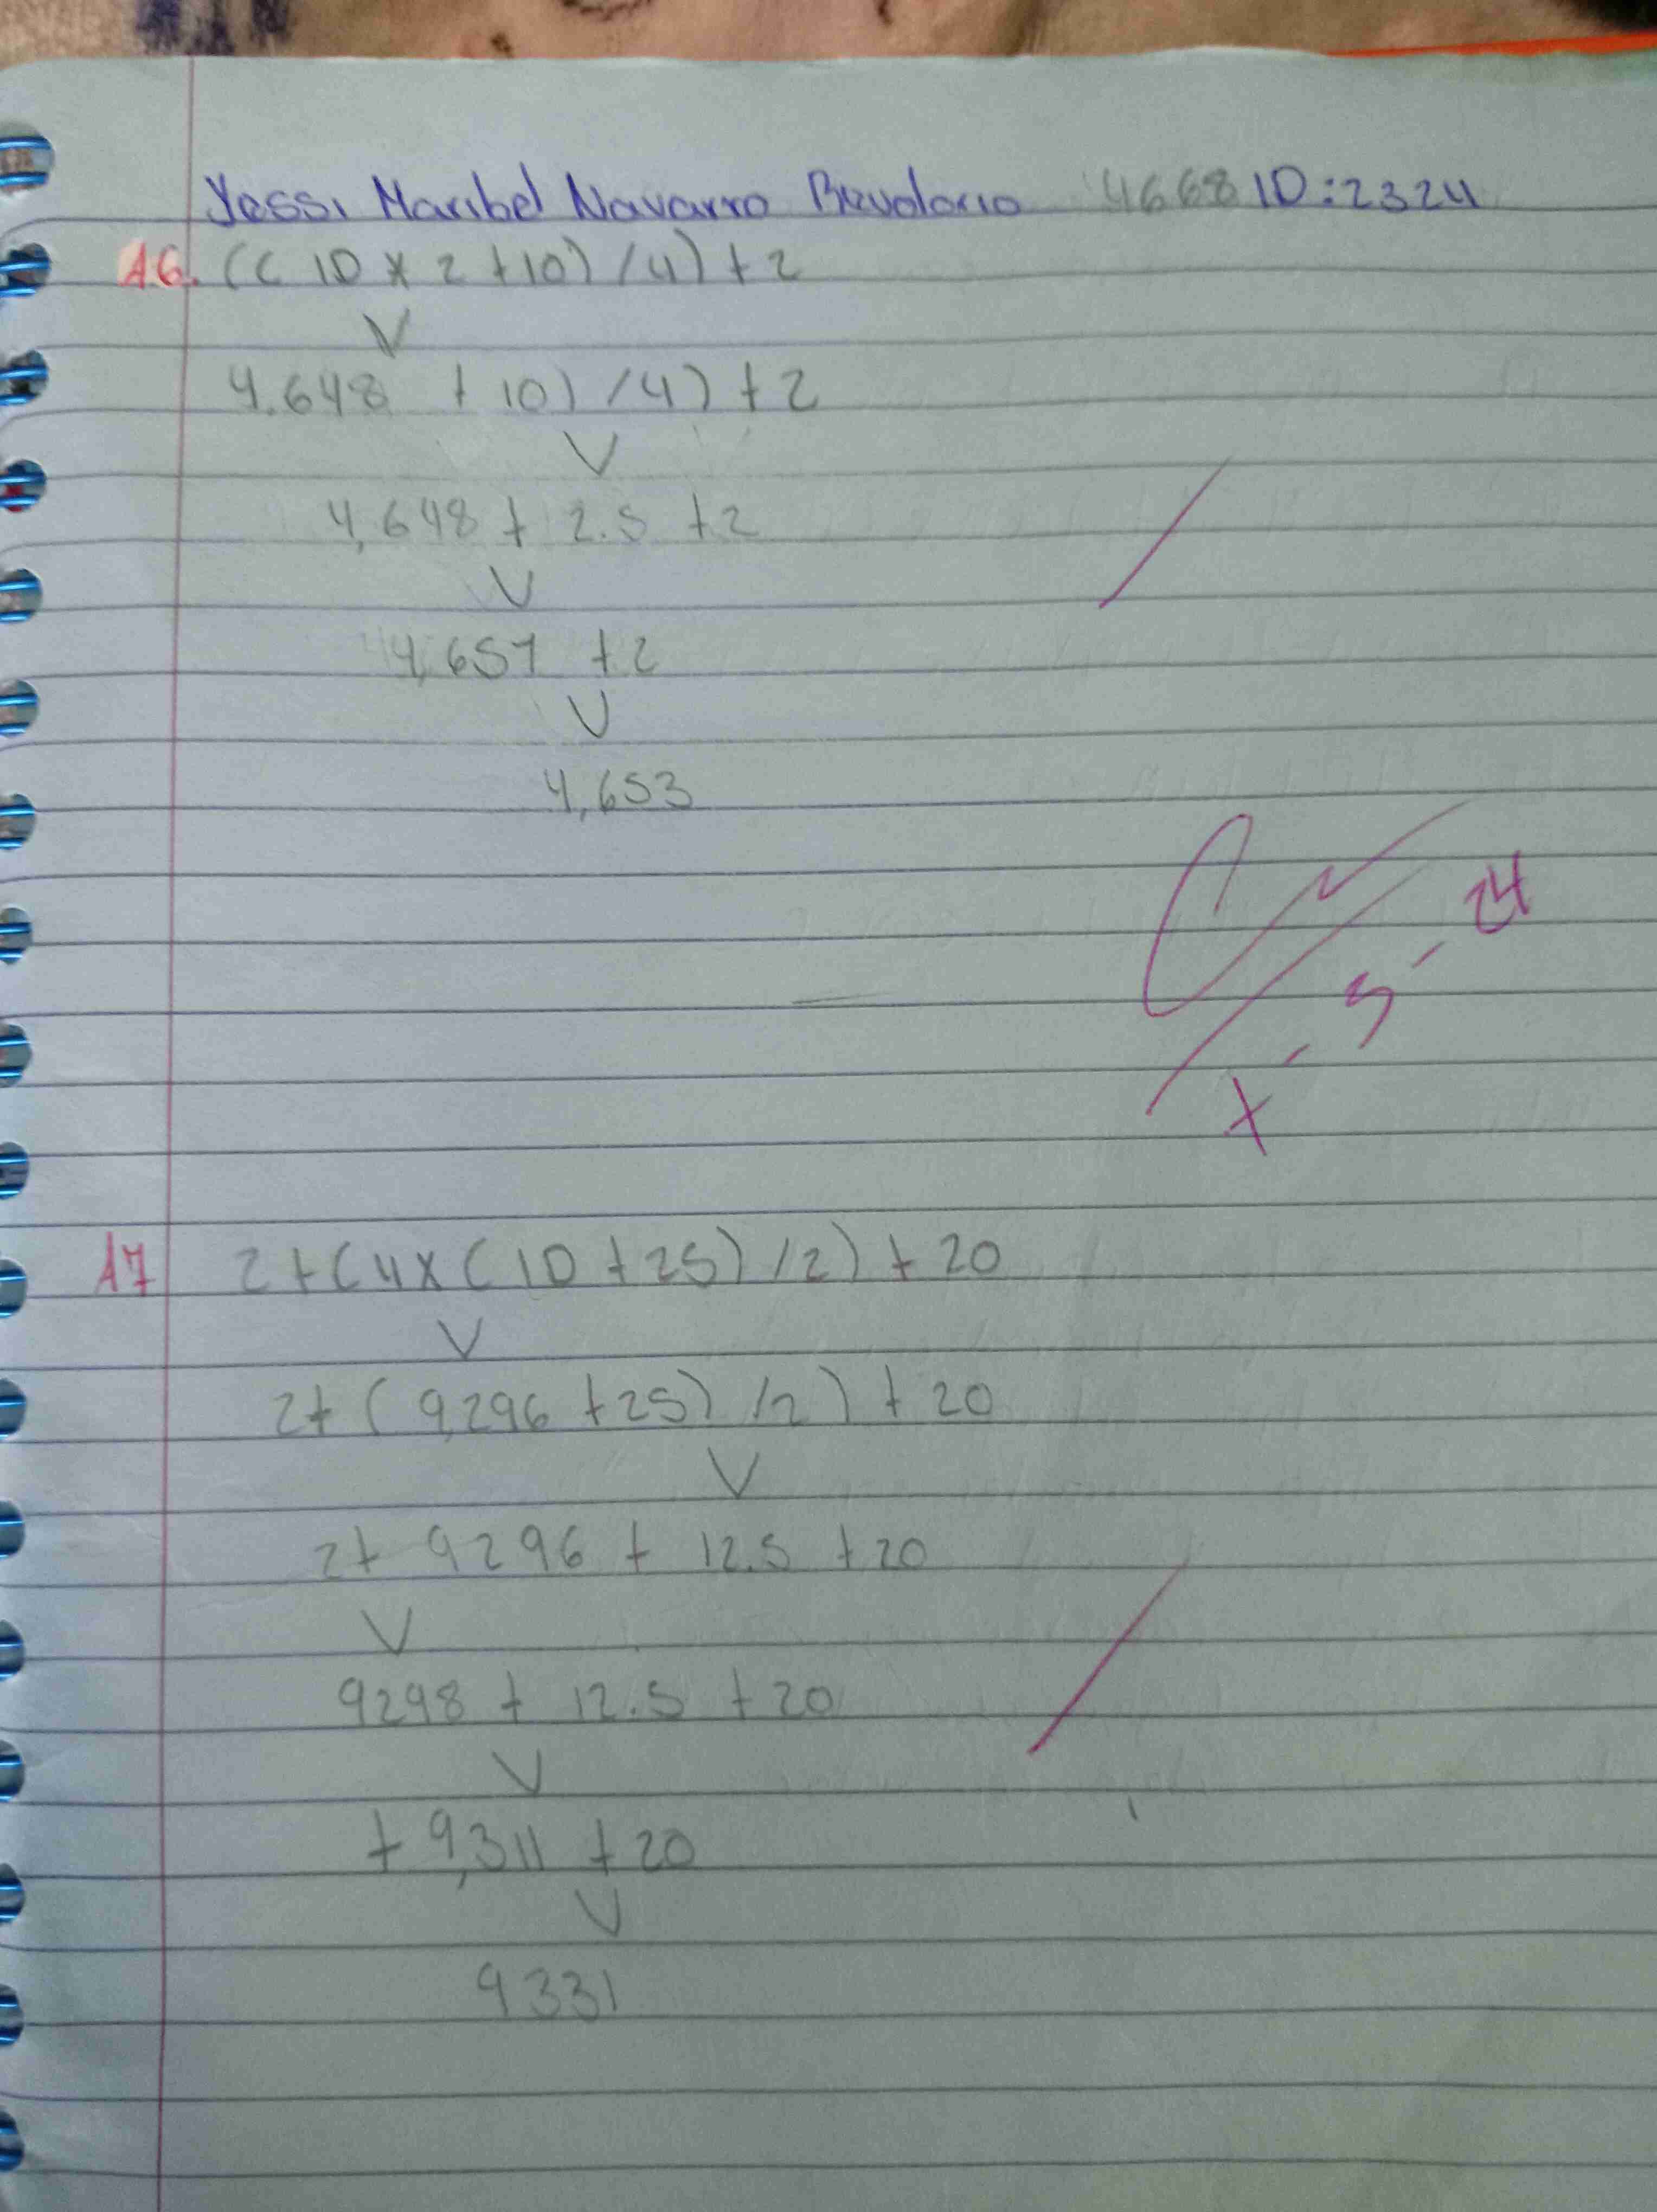 Yessi Maribel Navarro 4668 ID:2324
16. (( ID * 2 +10) /4) +2
V
4.648 + 10) /4) +2
V
4,648 + 2.5 +2
V
4,651 +2
V
4,653
24
5
X
17 2+(4x( ID +25) /2) + 20
V
2+ ( 9,296 +25) /2 ) + 20
V
2+ 9296 + 12.5 +20
V
9298 + 12.5 +20
V
+ 9,311 +20
V
9331